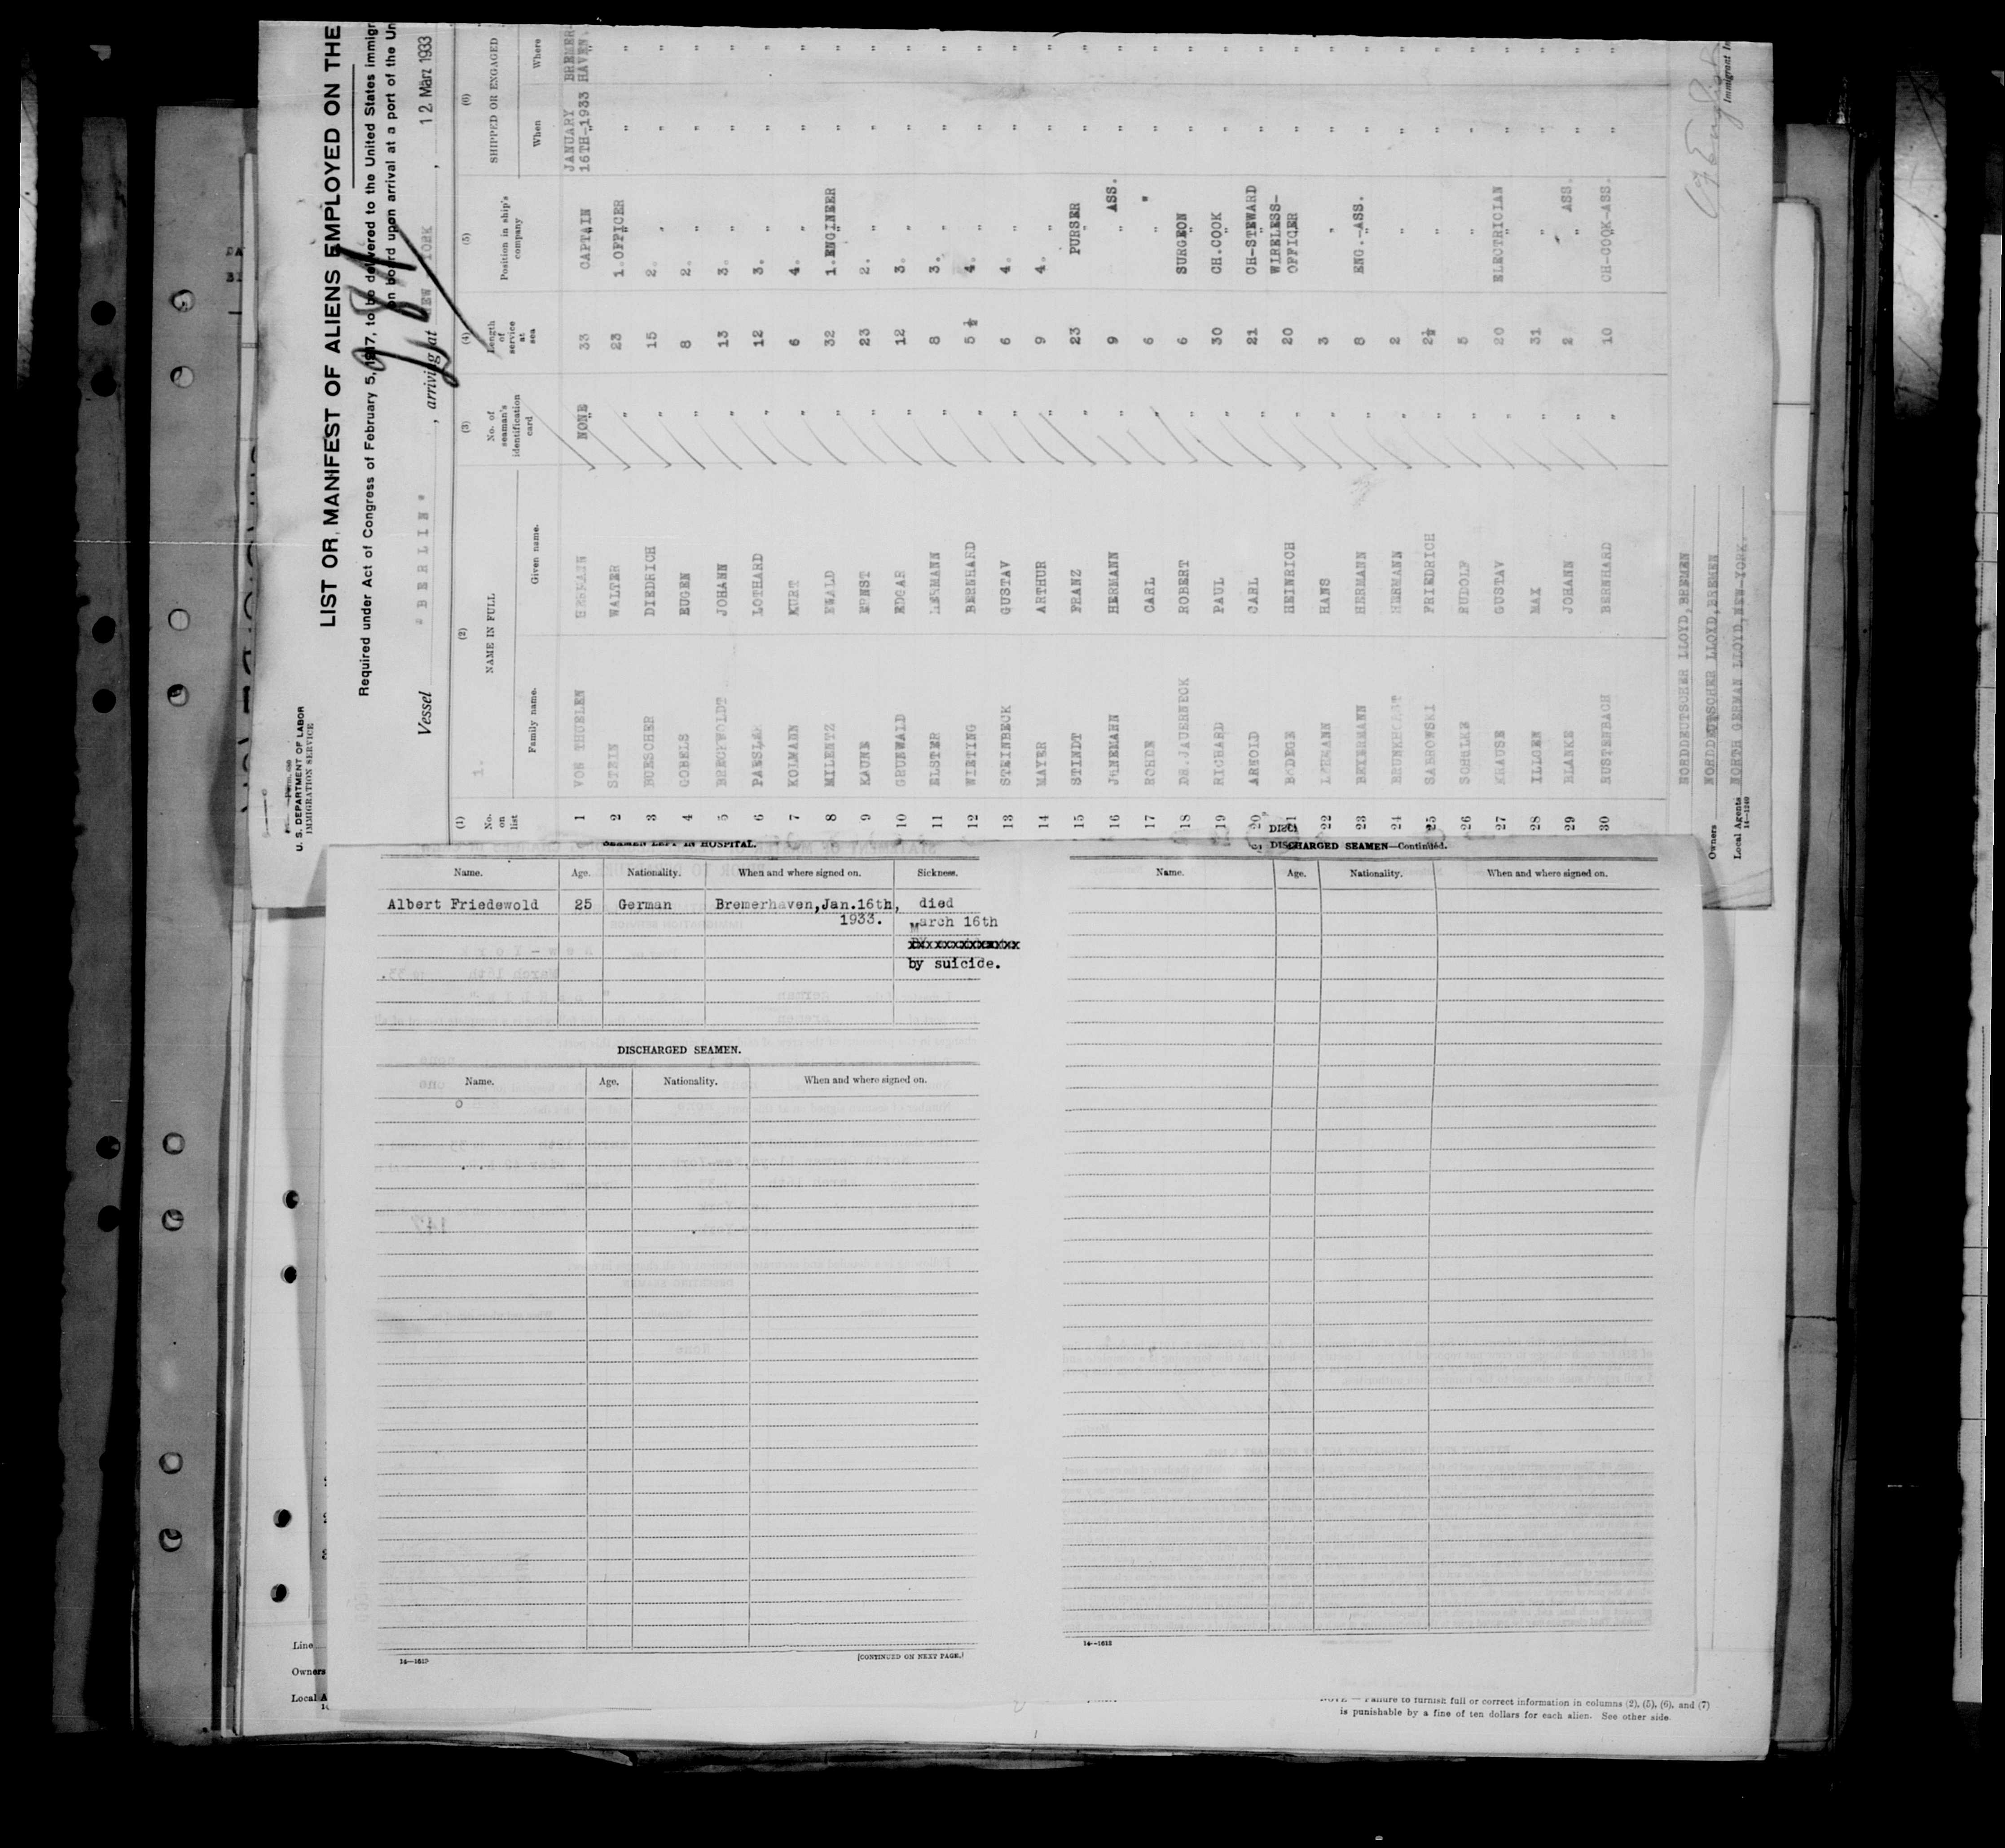 U. S. DEPARTMENT OF LABOR
IMMIGRATION SERVICE
LIST OR MANIFEST OF ALIENS EMPLOYED ON THE
Required under Act of Congress of February 5, 1917, to be delivered to the United States immigr
on board upon arrival at a port of the Un
Vessel "BERLIN" , arriving at NEW YORK , 12 März 1933
(1) (2) (3) (4) (5) (6)
No. on list NAME IN FULL No. of seaman's identification card Length of service at sea Position in ship's company SHIPPED OR ENGAGED
Family name. Given name. When Where
1.
JANUARY BREMER-
1 VON THUELEN HERMAIN NONE 33 CAPTAIN 16TH-1933 HAVEN.
2 STEIN WALTER " 23 1.OFFICER " "
3 BUESCHER DIEDRICH " 15 2. " " "
4 GOBELS EUGEN " 8 2. " " "
5 BRECKWOLDT JOHANN " 13 3. " " "
6 PAESLER LOTHARD " 12 3. " " "
7 KOLMANN KURT " 6 4. " " "
8 MILENTZ EWALD " 32 1.ENGINEER " "
9 KAUNE ERNST " 23 2. " " "
10 GRUNWALD EDGAR " 12 3. " " "
11 ELSTER HERMANN " 8 3. " " "
12 WIETING BERNHARD " 5½ 4. " " "
13 STEINBECK GUSTAV " 6 4. " " "
14 MAYER ARTHUR " 9 4. " " "
15 STINDT FRANZ " 23 PURSER " "
16 JÜNEMANN HERMANN " 9 " ASS. " "
17 ROHDE CARL " 6 " " " "
18 DR.JAUERNECK ROBERT " 6 SURGEON " "
19 RICHARD PAUL " 30 CH.COOK " "
20 ARNOLD CARL " 21 CH-STEWARD " "
21 BÖDEGE HEINRICH " 20 WIRELESS-OFFICER " "
22 HANS " 3 " " "
23 BEYERMANN HERMANN " 8 ENG.-ASS. " "
24 BRUNKHORST HERMANN " 2 " " "
25 SABROWSKI FRIEDRICH " 2½ " " "
26 SCHULKE RUDOLF " 5 " " "
27 KRAUSE GUSTAV " 20 ELECTRICIAN " "
28 ILLGEN MAX " 31 " " "
29 BLANKE JOHANN " 2 " ASS. " "
30 RUSTENBACH BERNHARD " 10 CH-COOK-ASS. " "
NORDDEUTSCHER LLOYD,BREMEN
Owners NORDDEUTSCHER LLOYD,BREMEN
Local Agents NORTH GERMAN LLOYD,NEW-YORK.
14—1240
Immigrant In
SEAMEN LEFT IN HOSPITAL.
Name. Age. Nationality. When and where signed on. Sickness.
Albert Friedewold 25 German Bremerhaven,Jan.16th, died
1933. March 16th
by suicide.
DISCHARGED SEAMEN.
Name. Age. Nationality. When and where signed on.
14—1613
[CONTINUED ON NEXT PAGE.]
DISCHARGED SEAMEN—Continued.
Name. Age. Nationality. When and where signed on.
14—1613
Line
Owners
Local A
NOTE — Failure to furnish full or correct information in columns (2), (5), (6), and (7)
is punishable by a fine of ten dollars for each alien. See other side.